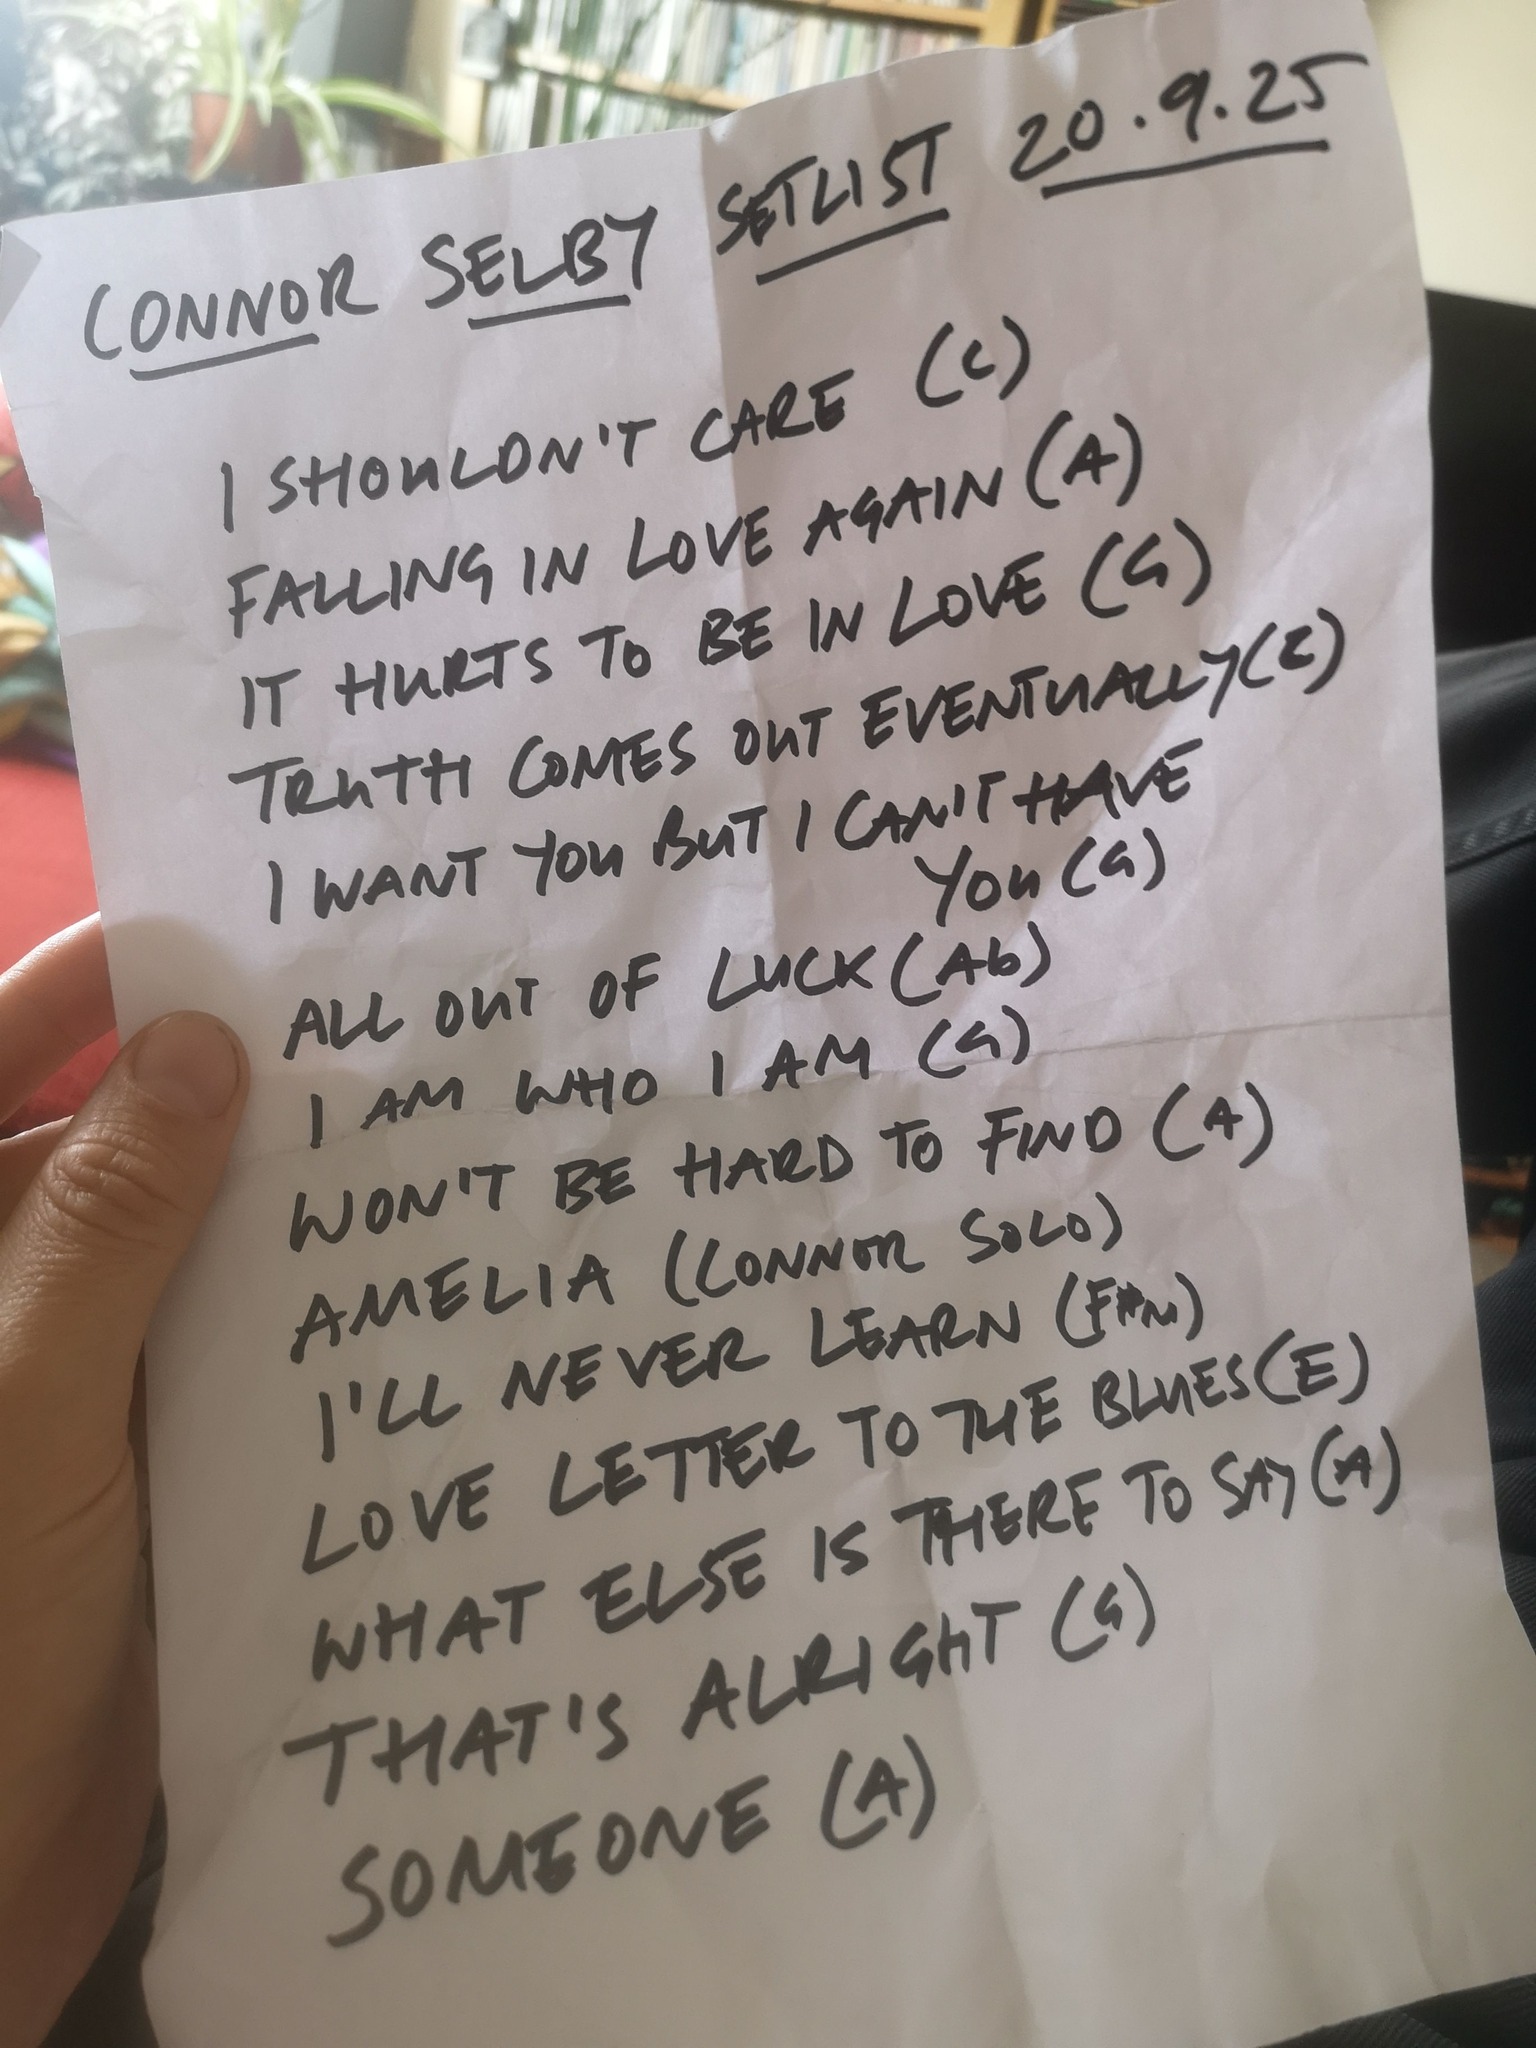 CONNOR SELBY SETLIST 20.9.25
I SHOULDN'T CARE (C)
FALLING IN LOVE AGAIN (A)
IT HURTS TO BE IN LOVE (G)
TRUTH COMES OUT EVENTUALLY (E)
I WANT YOU BUT I CAN'T HAVE
YOU (G)
ALL OUT OF LUCK (Ab)
I AM WHO I AM (G)
WON'T BE HARD TO FIND (A)
AMELIA (CONNOR SOLO)
I'LL NEVER LEARN (F#m)
LOVE LETTER TO THE BLUES (E)
WHAT ELSE IS THERE TO SAY (A)
THAT'S ALRIGHT (G)
SOMEONE (A)